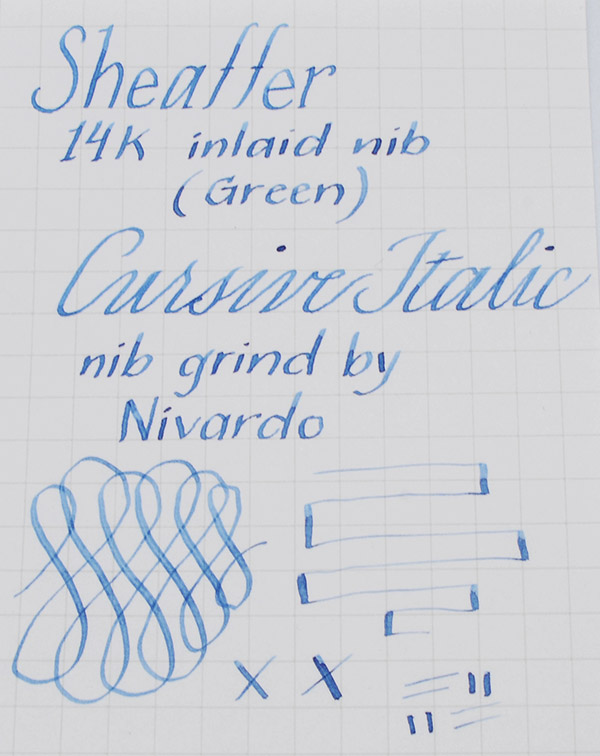 Sheaffer
14K inlaid nib
(Green)
Cursive Italic
nib grind by
Nivardo